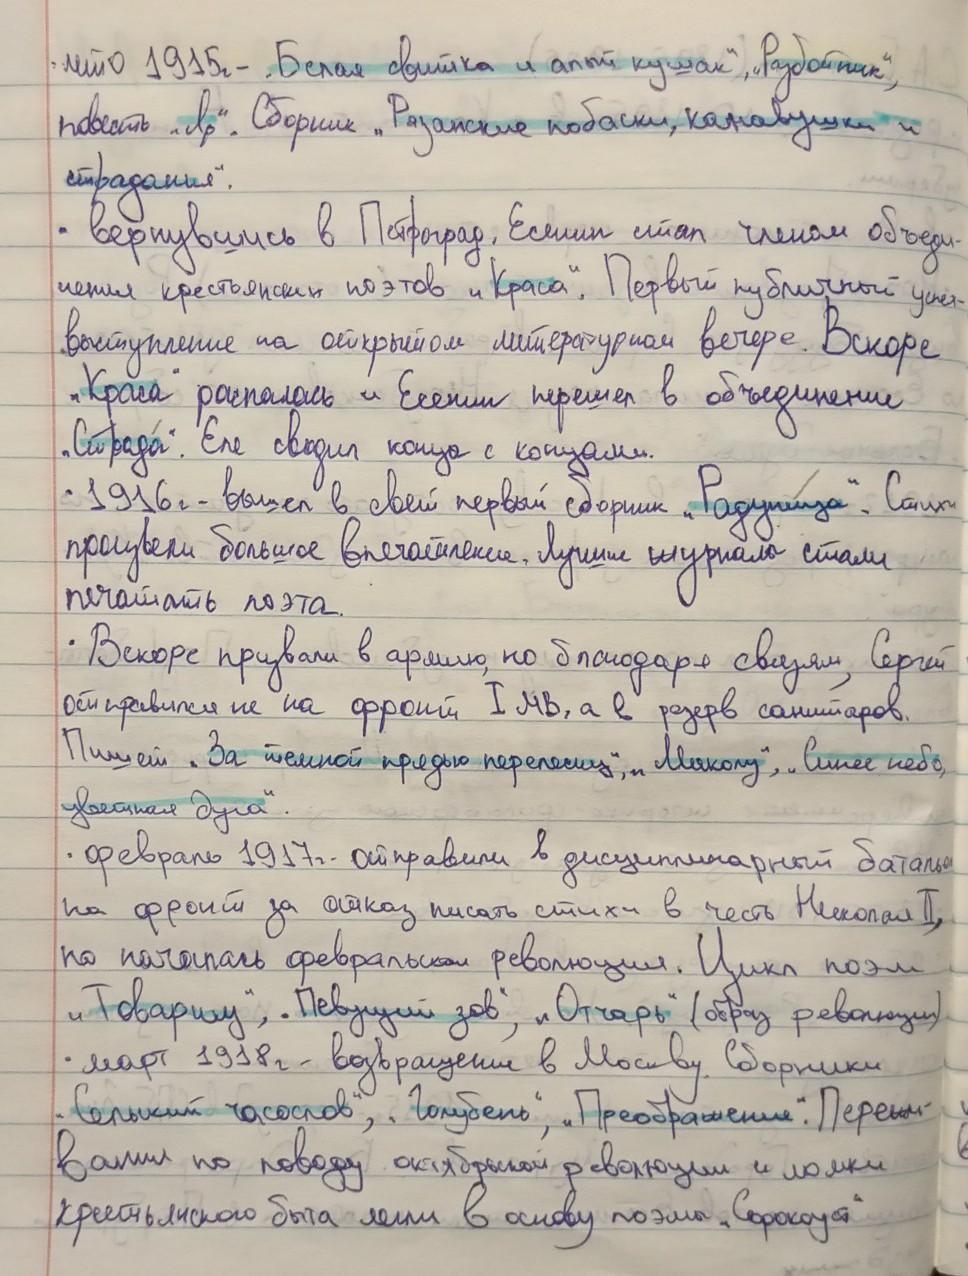 · лето 1915г - „Белая свитка и алый кушак", „Разбойник",
повесть „Яр". Сборник „Рязанские побаски, канавушки и
страдания".
· вернувшись в Петроград, Есенин стал членом объеди-
нения крестьянских поэтов „Краса". Первый публичный успех -
выступление на открытом литературном вечере. Вскоре
„Краса" распалась и Есенин перешел в объединение
„Страда". Еле сводил концы с концами.
· 1916г - вышел в свет первый сборник „Радуница". Стихи
произвели большое впечатление. Лучшие журналы стали
печатать поэта.
· Вскоре призвали в армию, но благодаря связям, Сергей
отправился не на фронт I МВ, а в резерв санитаров.
Пишет „За темной прядью перелесиц", „Микола", „Синее небо,
цветная дуга".
· февраль 1917г - отправили в дисциплинарный батальон
на фронт за отказ писать стихи в честь Николая II,
но началась февральская революция. Цикл поэм
„Товарищ", „Певущий зов", „Отчарь" (образ революции)
· март 1918г - возвращение в Москву. Сборники
„Сельский часослов", „Голубень", „Преображение". Пережи-
вания по поводу октябрьской революции и ломки
крестьянского быта легли в основу поэмы „Сорокоуст"